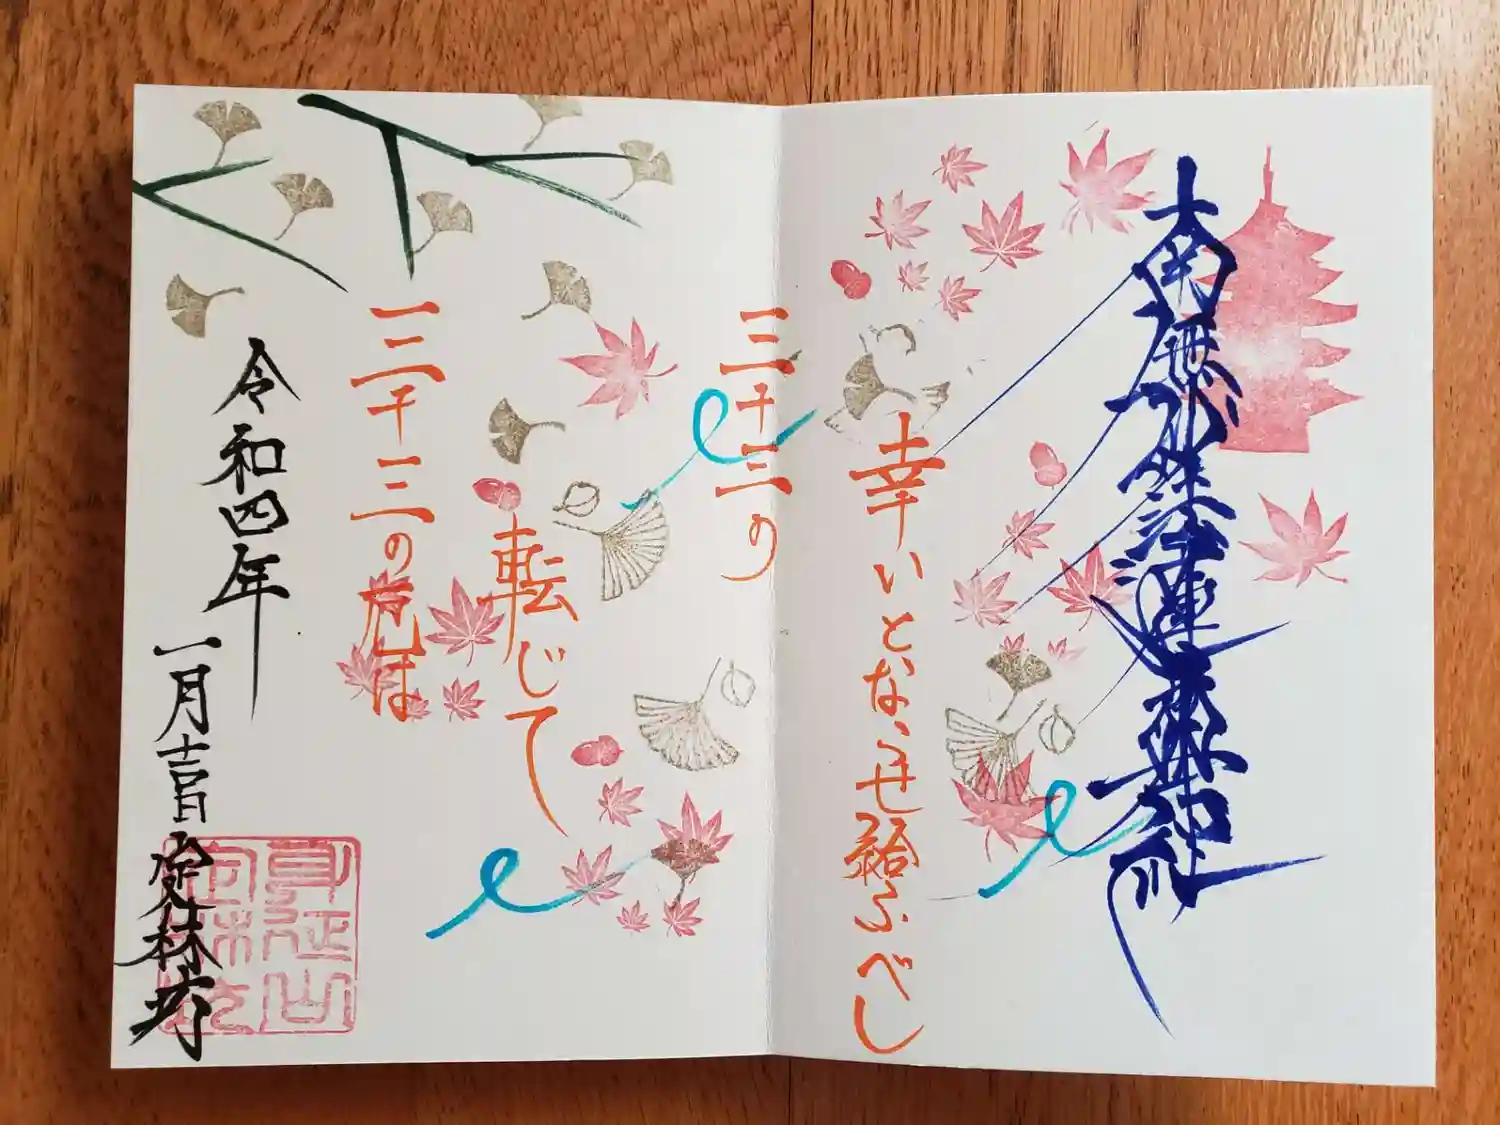 南無妙法蓮華経
三十三の厄は
転じて
三十三の
幸いとならせ給ふべし
令和四年
一月吉日 定林坊
身延山
定林坊